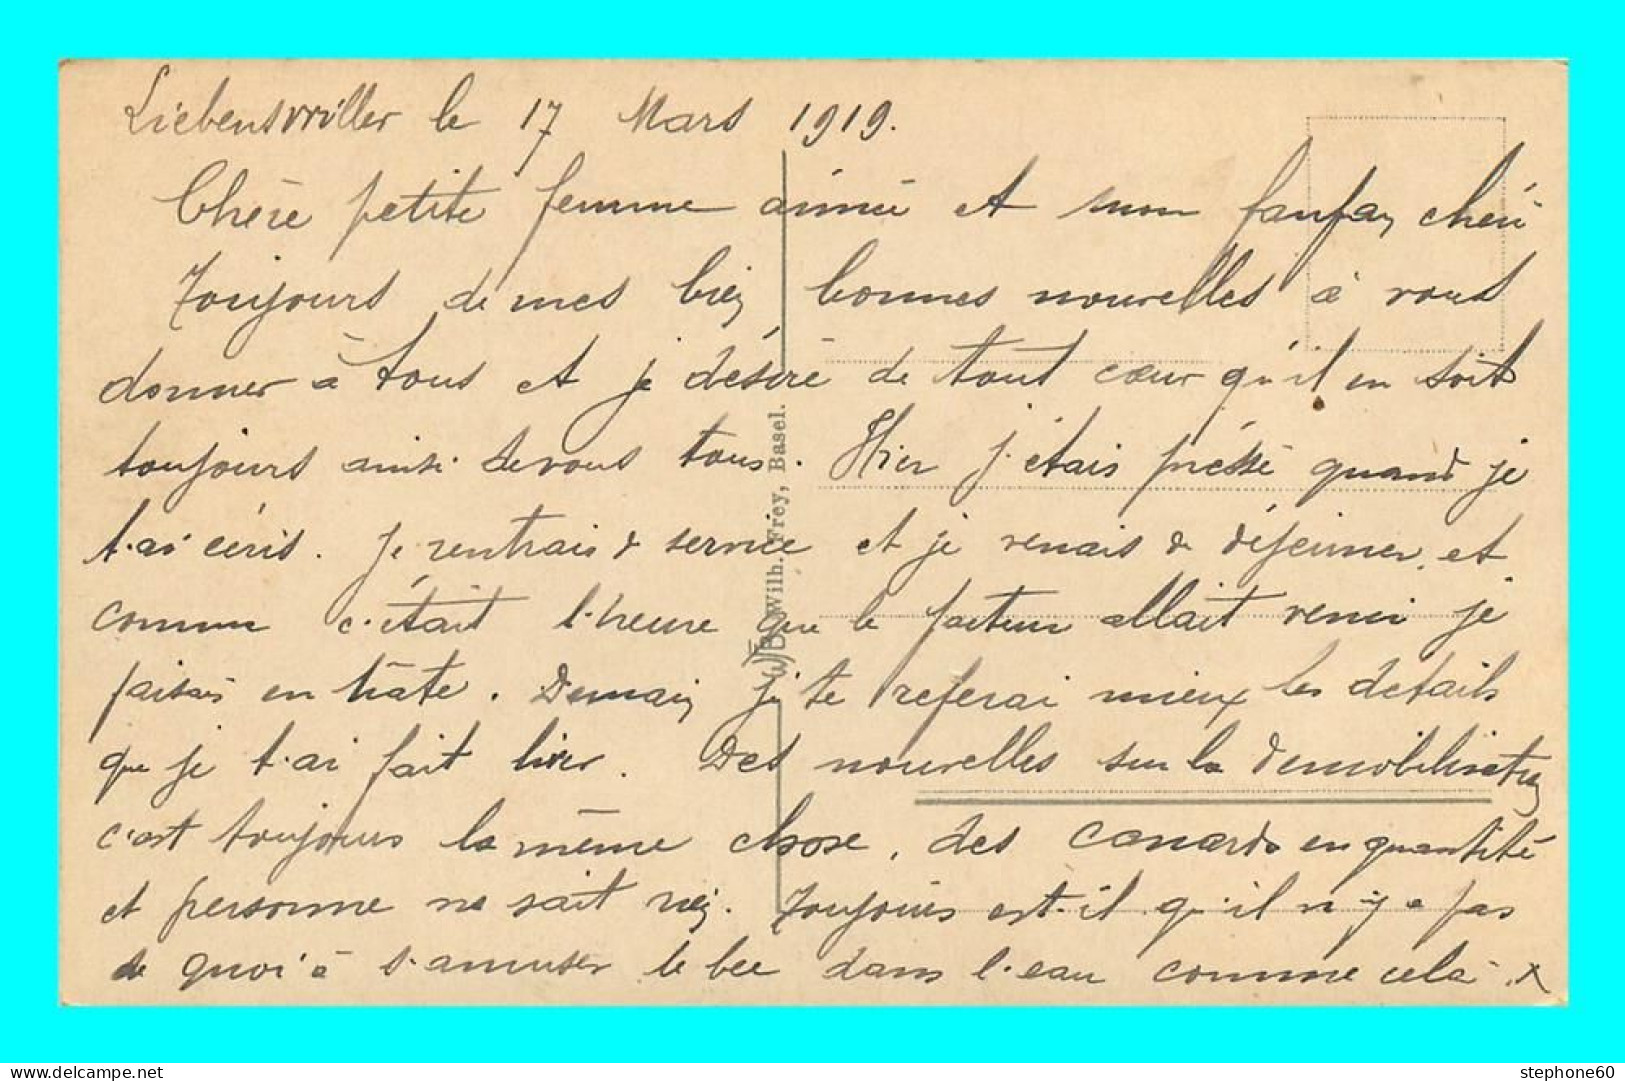 Liebenswiller le 17 Mars 1919.
Chère petite femme aimée et mon fanfan chéri
Toujours de mes bien bonnes nouvelles à vous
donner à tous et je désire de tout cœur qu'il en soit
toujours ainsi de vous tous. Hier j'étais préssé quand je
t'ai écris. Je rentrais de service et je venais de déjeuner, et
comme c'était l'heure que le facteur allait venir je
faisais en hâte. Demain je te referai mieux les détails
que je t'ai fait hier. Des nouvelles sur la démobilisation
c'est toujours la même chose, des canards en quantité
et personne ne sait rien. Toujours est-il qu'il n'y a pas
de quoi à s'amuser le bec dans l'eau comme celà.
Wilh. Frey, Basel.
stephone60